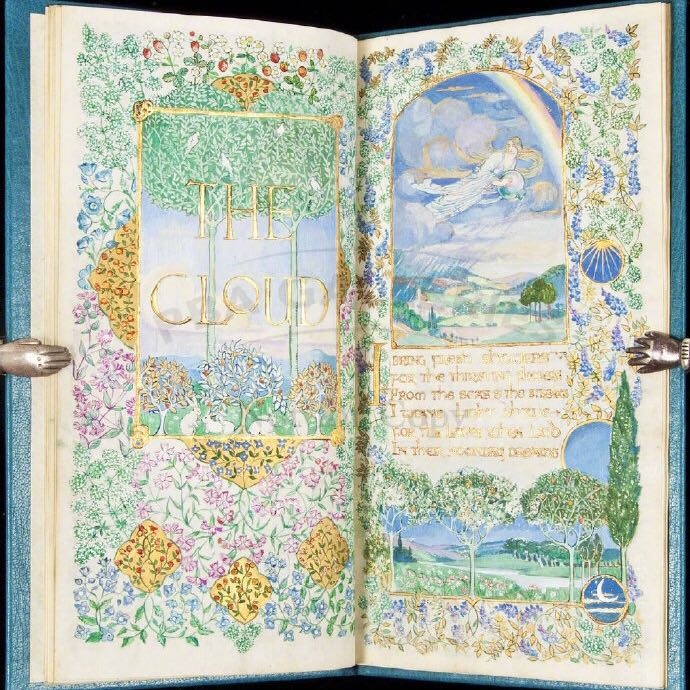 THE
CLOUD
I BRING FRESH SHOWERS
FOR THE THIRSTING FLOWERS
FROM THE SEAS & THE STREAMS
I LIGHT SHADE
FOR THE LEAVES WHEN LAID
IN THEIR NOONDAY DREAMS
Copy